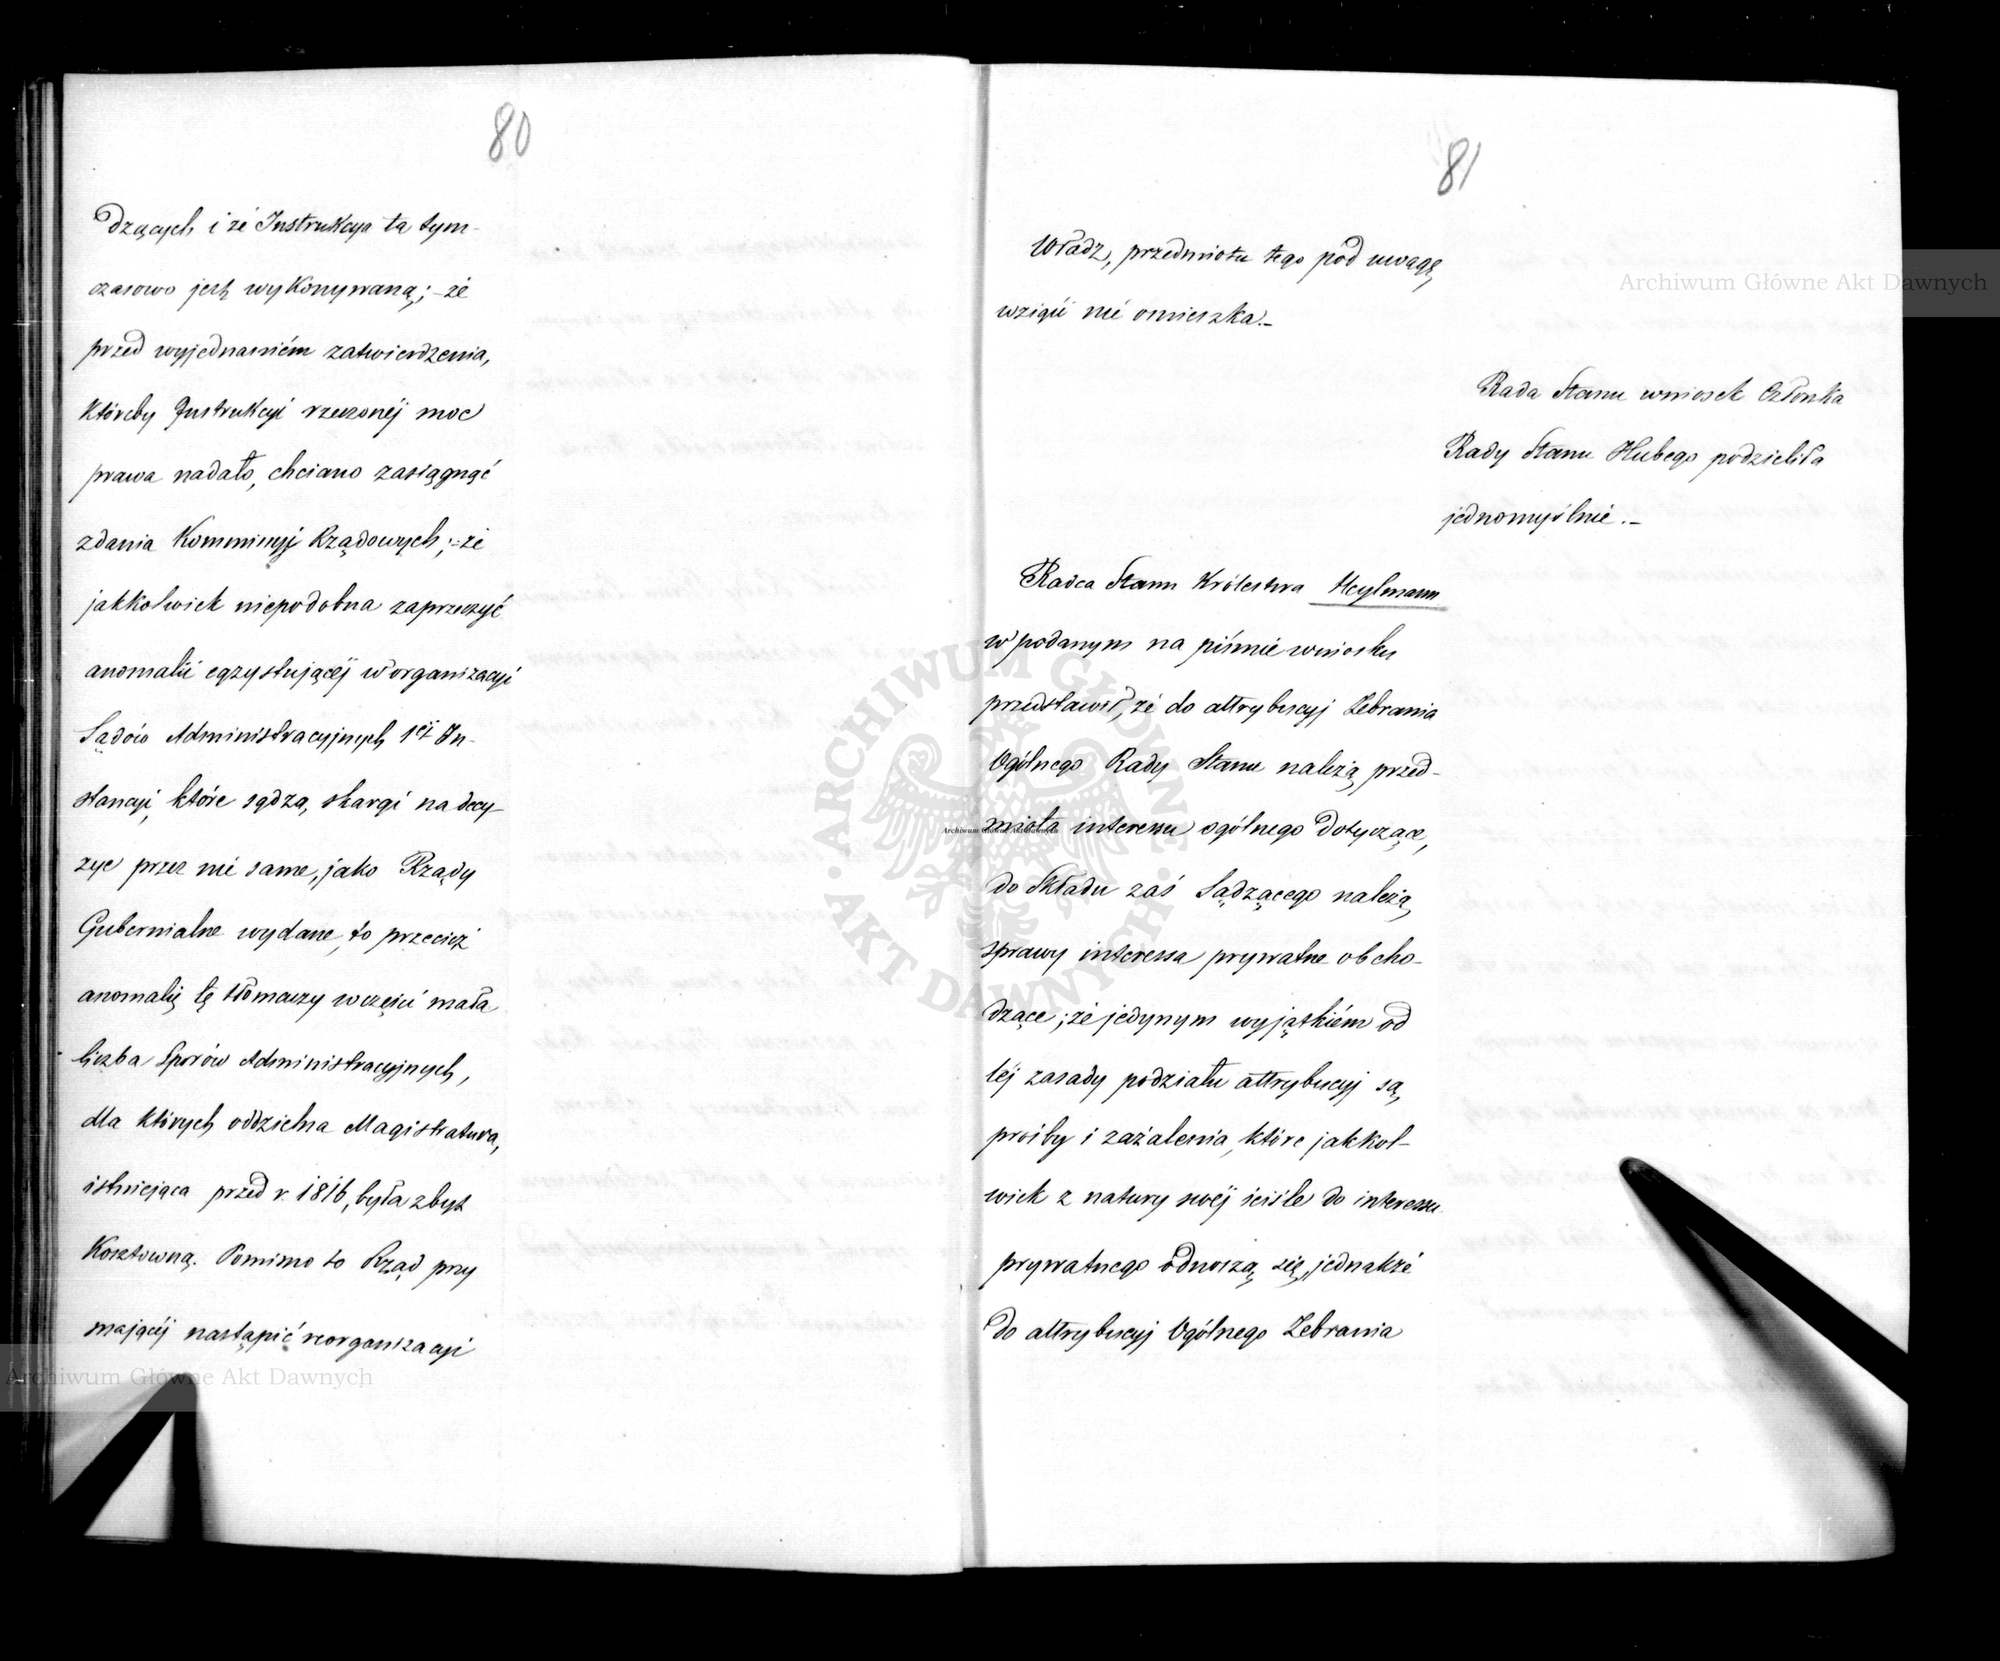 80
dzących i że Instrukcya ta tym-
czasowo jest wykonywaną; - że
przed wyjednaniém zatwierdzenia,
któreby Instrukcyi rzeczonéj moc
prawa nadało, chciano zasiągnąć
zdania Kommissyj Rządowych; - że
jakkolwiek niepodobna zaprzeczyć
anomalii egzystującéj w organizacyi
Sądów Administracyjnych 1éj In-
stancyi, które sądzą skargi na decy-
zye przez nie same, jako Rządy
Gubernialne wydane, to przecież
anomalię tę tłomaczy w części mała
liczba Sporów Administracyjnych,
dla których oddzielna Magistratura,
istniejąca przed r. 1816, była zbyt
Kosztowną. Pomimo to Rząd przy
mającéj nastąpić reorganizacyi
81
Władz, przedmiotu tego pod uwagę
wziąść nie omieszka. -
Rada Stanu wniosek Członka
Rady Stanu Hubego podzieliła
jednomyślnie. -
Radca Stanu Królestwa Heylmann
w podanym na piśmie wniosku
przedstawił, że do attrybucyj Zebrania
Ogólnego Rady Stanu należą przed-
miota interessu ogólnego dotyczące,
do Składu zaś Sądzącego należą
sprawy interessa prywatne obcho-
dzące; że jedynym wyjątkiém od
téj zasady podziału attrybucyj są
prośby i zażalenia, które jakkol-
wiek z natury swéj ściśle do interessu
prywatnego odnoszą się, jednakże
do attrybucyj Ogólnego Zebrania
Archiwum Główne Akt Dawnych
Archiwum Główne Akt Dawnych
Archiwum Główne Akt Dawnych
ARCHIWUM GŁÓWNE · AKT DAWNYCH ·